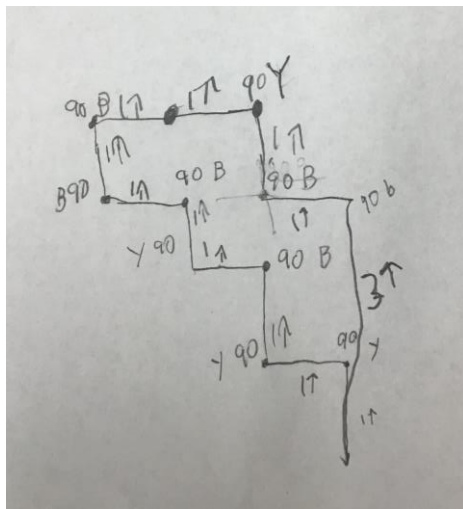 90 B 1↑ 1↑ 90 Y
1↑ 1↑
B 90 1↑ 90 B 90 B
1↑ 1↑ 90 b
Y 90 1↑ 90 B
3↑
1↑
Y 90 90 Y
1↑
1↑